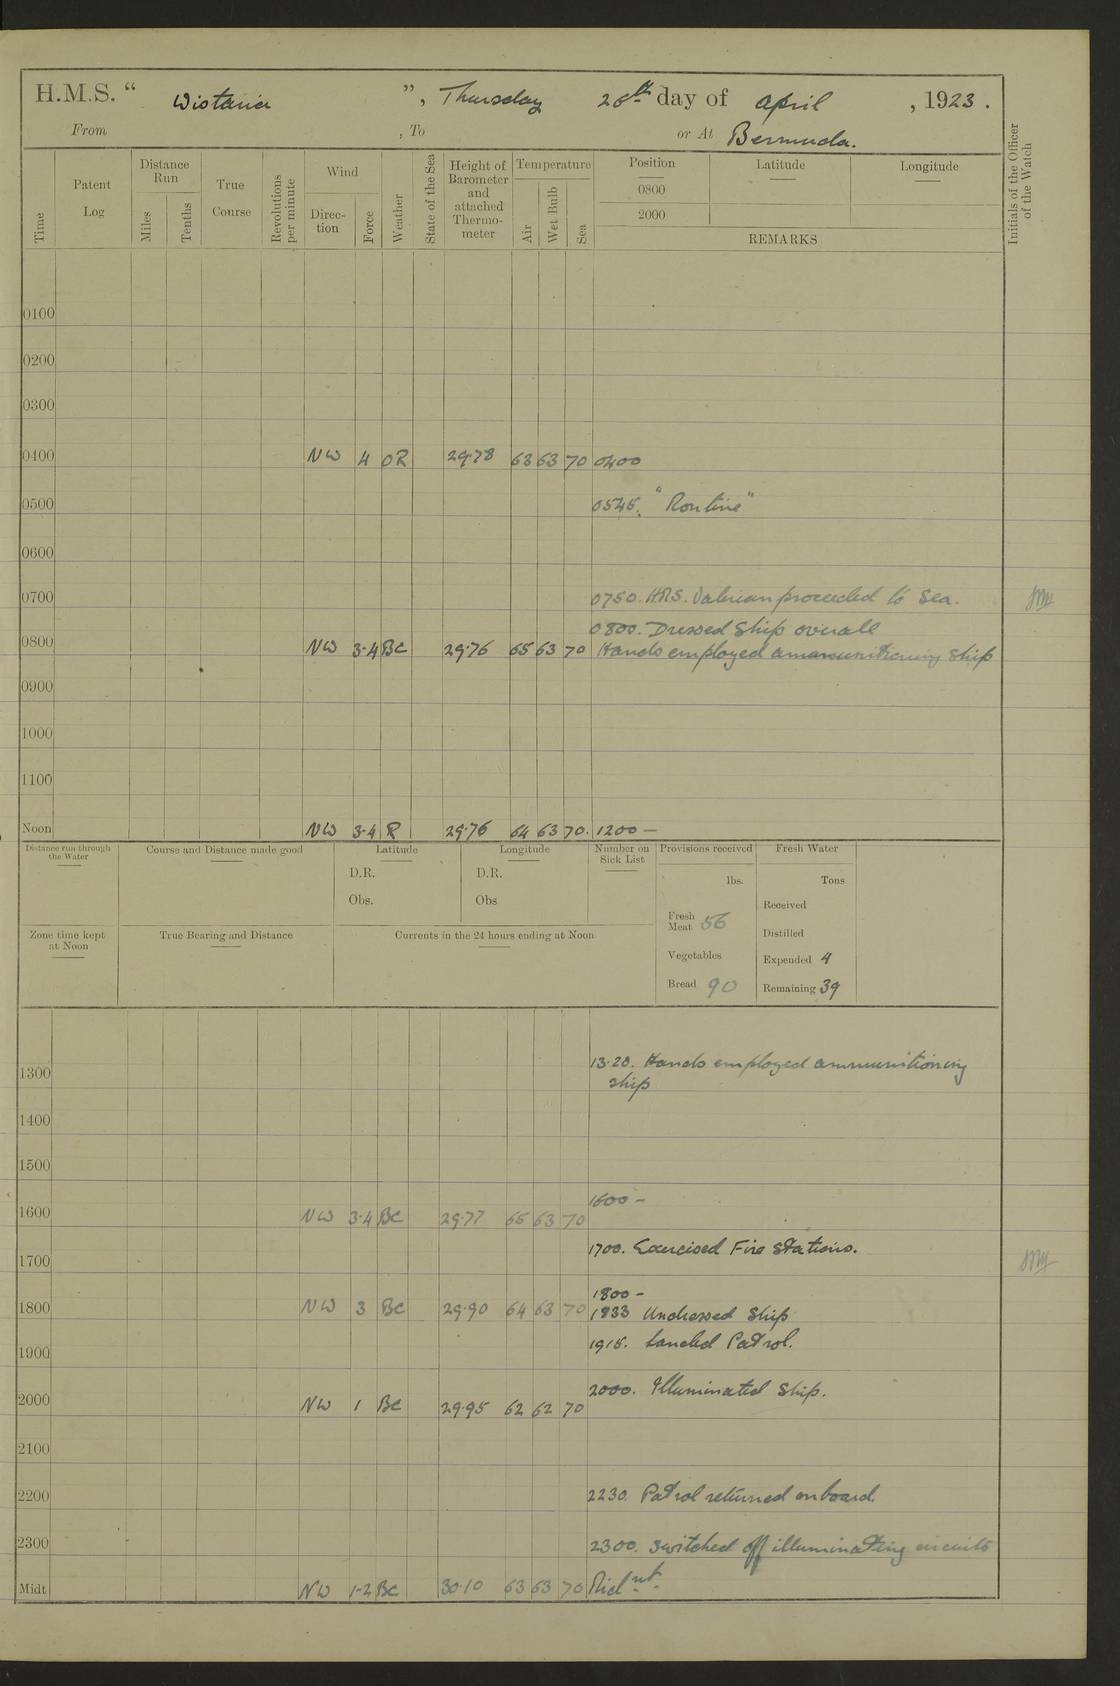 H.M.S. “ Wistaria ”, Thursday 26th day of April, 1923.
From , To or At Bermuda.
Time
Patent Log
Distance Run
Miles
Tenths
True Course
Revolutions per minute
Wind
Direction
Force
Weather
State of the Sea
Height of Barometer and attached Thermometer
Temperature
Air
Wet Bulb
Sea
Position
0800
2000
Latitude
Longitude
REMARKS
Initials of the Officer of the Watch
0100
0200
0300
0400 NW 4 OR 29.78 63 63 70 0400
0500 0545. "Routine"
0600
0700 0750. HMS. Valerian proceeded to Sea.
0800. Dressed Ship overall
0800 NW 3-4 BC 29.76 65 63 70 Hands employed ammunitioning Ship
0900
1000
1100
Noon NW 3-4 R 29.76 64 63 70. 1200 —
Distance run through the Water
Course and Distance made good
Latitude
D.R.
Obs.
Longitude
D.R.
Obs
Number on Sick List
Provisions received
lbs.
Fresh Meat 56
Vegetables
Bread 90
Fresh Water
Tons
Received
Distilled
Expended 4
Remaining 39
Zone time kept at Noon
True Bearing and Distance
Currents in the 24 hours ending at Noon
1300 13.20. Hands employed ammunitioning
ship
1400
1500
1600 —
1600 NW 3-4 BC 29.77 65 63 70
1700. Exercised Fire Stations.
1700
1800 —
1800 NW 3 BC 29.90 64 63 70 1833 Undressed Ship
1900 1915. Landed Patrol.
2000. Illuminated Ship.
2000 NW 1 BC 29.95 62 62 70
2100
2200 2230. Patrol returned onboard.
2300 2300. Switched off illuminating circuits
Midt NW 1-2 BC 30.10 63 63 70 Mid nt.